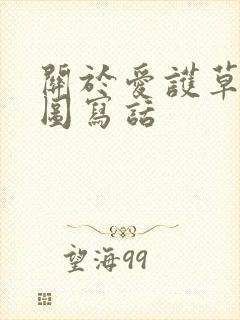 關於愛護草
圖寫話
望海99